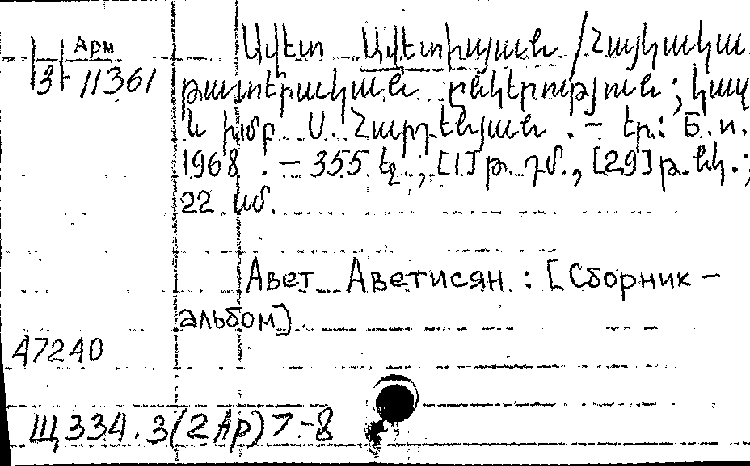 Арм
3- 11361
Ավետ Ավետիսյան / Հայկական
թատերական ընկերություն; կազմ
և խմբ. Ս. Հարությունյան. – Եր.: Б. и.
1968. – 355 էջ; [1] թ. դմ., [29] թ. նկ.;
22 սմ.
Авет Аветисян : [Сборник-
альбом]
47240
Щ334.3(2Ар)7-8